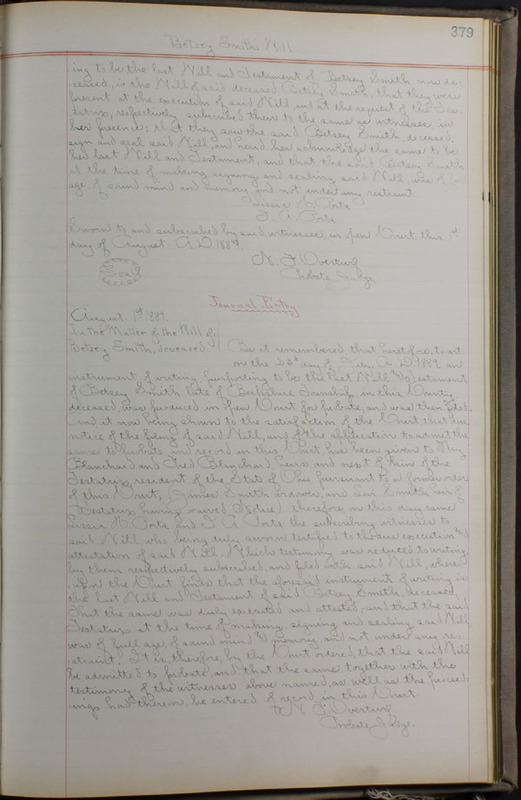 379
Betsey Smith's Will
ing to be the last Will and Testament of Betsey Smith now de-
ceased, is the Will of said deceased Betsey Smith, that they were
present at the execution of said Will and at the request of the Tes-
tatrix, respectively subscribed their to the same as witnesses in
her presence; that they saw the said Betsey Smith deceased,
sign and seal said Will, and heard her acknowledge the same to be
her last Will and Testament, and that the said Betsey Smith
at the time of making, signing and sealing said Will, was of
age, of sound mind and memory and not under any restraint.
F. A. Forts
Sworn to and subscribed by said witnesses, in open Court this 1st
day of August A.D. 1889.
N. F. Overturf
Seal
Probate Judge.
Journal Entry.
August 1st 1889.
In The Matter of the Will of
Betsey Smith, deceased
Be it remembered, that heretofore, to wit
on the 23d day of July A.D. 1889 an
instrument of writing purporting to be the last Will and Testament
of Betsey Smith late of Berkshire Township, in this County
deceased, was produced in open Court for probate, and was then filed.
And it now being shown to the satisfaction of the Court that due
notice of the filing of said Will, and of the application to admit the
same to probate and record in this Court has been given to
Blanchard and Fred Blanchard heirs and next of kin of the
Testatrix, resident of the State of Ohio pursuant to a former order
of this Court, (James Smith widower, and Smith heir of
Testatrix having waived Notice) therefore, on this day came
and F. A. Forts the subscribing witnesses to
said Will who being duly sworn testified to the due execution and
attestation of said Will. Which testimony was reduced to writing
by them respectively subscribed, and filed with said Will, where-
upon the Court finds that the aforesaid instrument of writing is
the last Will and Testament of said Betsey Smith, deceased,
that the same was duly executed and attested, and that the said
Testatrix at the time of making, signing and sealing said Will
was of full age, of sound mind and memory, and not under any re-
straint. It is, therefore, by the Court ordered, that the said Will
be admitted to probate, and that the same, together with the
testimony of the witnesses above named, as well as the proceed-
ings had therein, be entered of record in this Court
N. F. Overturf
Probate Judge.